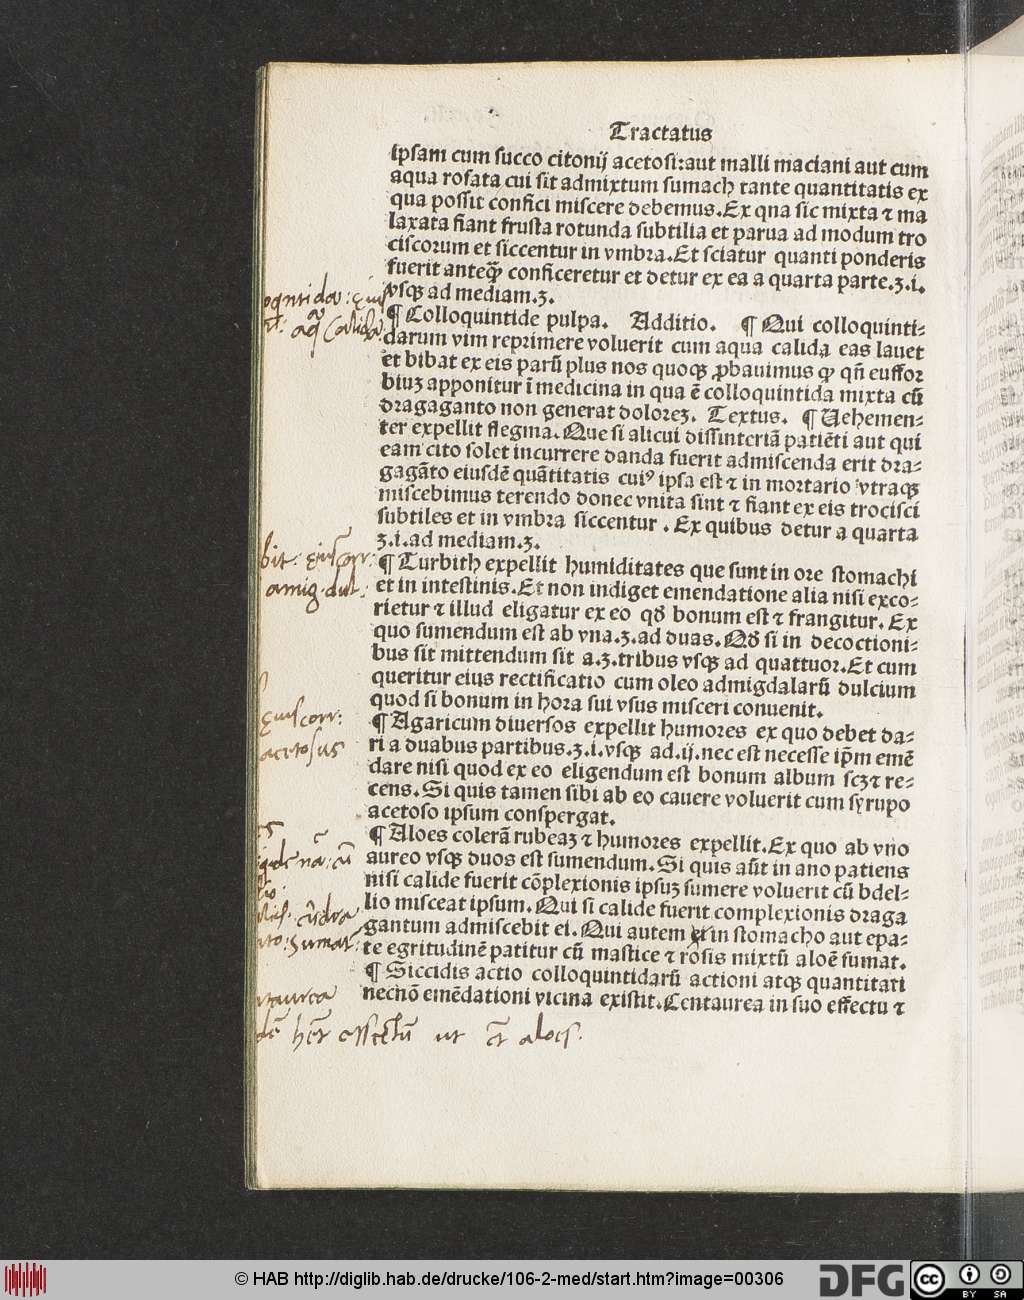 Tractatus
ipsam cum succo citonij acetosi:aut malli maciani aut cum
aqua rosata cui sit admixtum sumach tante quantitatis ex
qua possit confici miscere debemus.Ex qna sic mixta ⁊ ma
laxata fiant frusta rotunda subtilia et parua ad modum tro
ciscorum et siccentur in vmbra.Et sciatur quanti ponderis
fuerit anteꝙ̃ conficeretur et detur ex ea a quarta parte.ʒ.i.
vsqꝫ ad mediam.ʒ.
¶ Colloquintide pulpa. Additio. ¶ Qui colloquinti-
darum vim reprimere voluerit cum aqua calida eas lauet
et bibat ex eis parū plus nos quoqꝫ ꝓbauimus ꝙ qñ euffor
biuꝫ apponitur ī medicina in qua ē colloquintida mixta cū
dragaganto non generat doloreꝫ. Textus. ¶ Uehemen-
ter expellit flegma.Que si alicui dissinteriā patiēti aut qui
eam cito solet incurrere danda fuerit admiscenda erit dra-
gagāto eiusdē quātitatis cuiꝰ ipsa est ⁊ in mortario vtraqꝫ
miscebimus terendo donec vnita sint ⁊ fiant ex eis trocisci
subtiles et in vmbra siccentur . Ex quibus detur a quarta
ʒ.i.ad mediam.ʒ.
¶ Turbith expellit humiditates que sunt in ore stomachi
et in intestinis.Et non indiget emendatione alia nisi exco-
rietur ⁊ illud eligatur ex eo qđ bonum est ⁊ frangitur. Ex
quo sumendum est ab vna.ʒ.ad duas.Qđ si in decoctioni-
bus sit mittendum sit a.ʒ.tribus vsqꝫ ad quattuor.Et cum
queritur eius rectificatio cum oleo admigdalarū dulcium
quod si bonum in hora sui vsus misceri conuenit.
¶ Agaricum diuersos expellit humores ex quo debet da-
ri a duabus partibus.ʒ.i.vsqꝫ ad.ij.nec est necesse ip̄m emē
dare nisi quod ex eo eligendum est bonum album scꝫ⁊ re-
cens.Si quis tamen sibi ab eo cauere voluerit cum syrupo
acetoso ipsum conspergat.
¶ Aloes colerā rubeaꝫ ⁊ humores expellit.Ex quo ab vno
aureo vsqꝫ duos est sumendum.Si quis aūt in ano patiens
nisi calide fuerit cōplexionis ipsuꝫ sumere voluerit cū bdel-
lio misceat ipsum.Qui si calide fuerit complexionis draga
gantum admiscebit ei.Qui autem in stomacho aut epa-
te egritudinē patitur cū mastice ⁊ rosis mixtū aloē sumat.
¶ Siccidis actio colloquintidarū actioni atqꝫ quantitati
necnō emēdationi vicina existit.Centaurea in suo effectu ⁊
calida
amig. dul.
eius corr:
acetosus
aloes.
© HAB http://diglib.hab.de/drucke/106-2-med/start.htm?image=00306
DFG
cc
BY SA